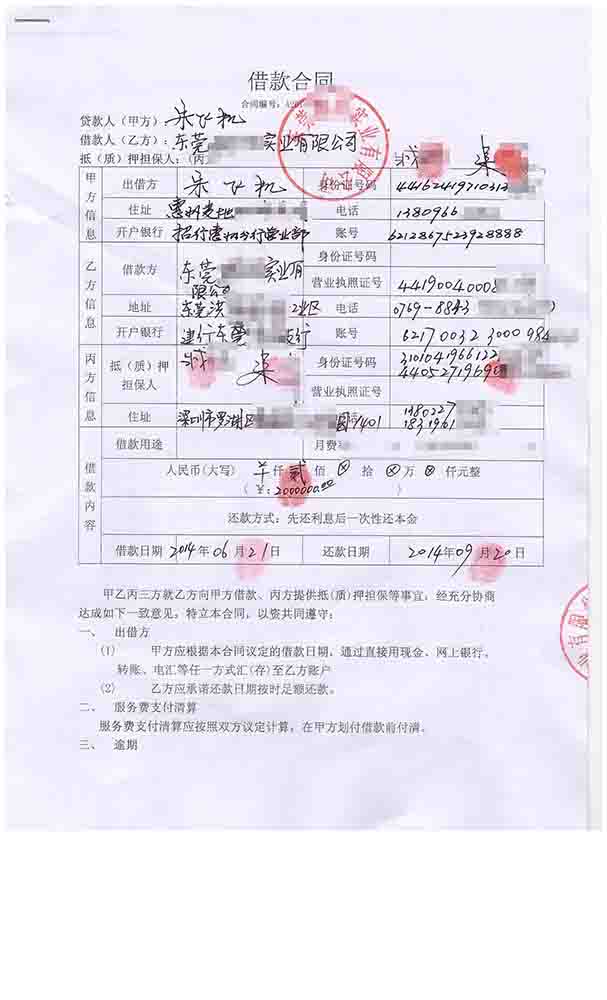 借款合同
合同编号：
贷款人（甲方）：朱飞机
借款人（乙方）：东莞 实业有限公司
抵（质）押担保人：（丙
甲方信息 出借方 朱飞机 身份证号码 44162419710313
住址 惠州 电话 1380966
开户银行 招行惠州分行营业部 账号 6212867523928888
乙方信息 借款方 东莞 实业有限公司 身份证号码
营业执照证号 44190040008
地址 东莞 工业区 电话 0769-8843
开户银行 建行东莞 支行 账号 62170032 3000984
丙方信息 抵（质）押担保人 身份证号码 310104196612
44052719690
营业执照证号
住址 深圳市罗湖区 园 7401 1380227
1831961
借款用途 月费
借款内容 人民币(大写) 仟 贰 佰 ⊗ 拾 ⊗ 万 ⊗ 仟元整
（¥：2000000.00 ）
还款方式：先还利息后一次性还本金
借款日期 2014年06月21日 还款日期 2014年09月20日
甲乙丙三方就乙方向甲方借款、丙方提供抵(质)押担保等事宜，经充分协商
达成如下一致意见，特立本合同，以资共同遵守：
一、 出借方
(1) 甲方应根据本合同议定的借款日期，通过直接用现金、网上银行、
转账、电汇等任一方式汇(存)至乙方账户
(2) 乙方应承诺还款日期按时足额还款。
二、 服务费支付清算
服务费支付清算应按照双方议定计算，在甲方划付借款前付清。
三、 逾期